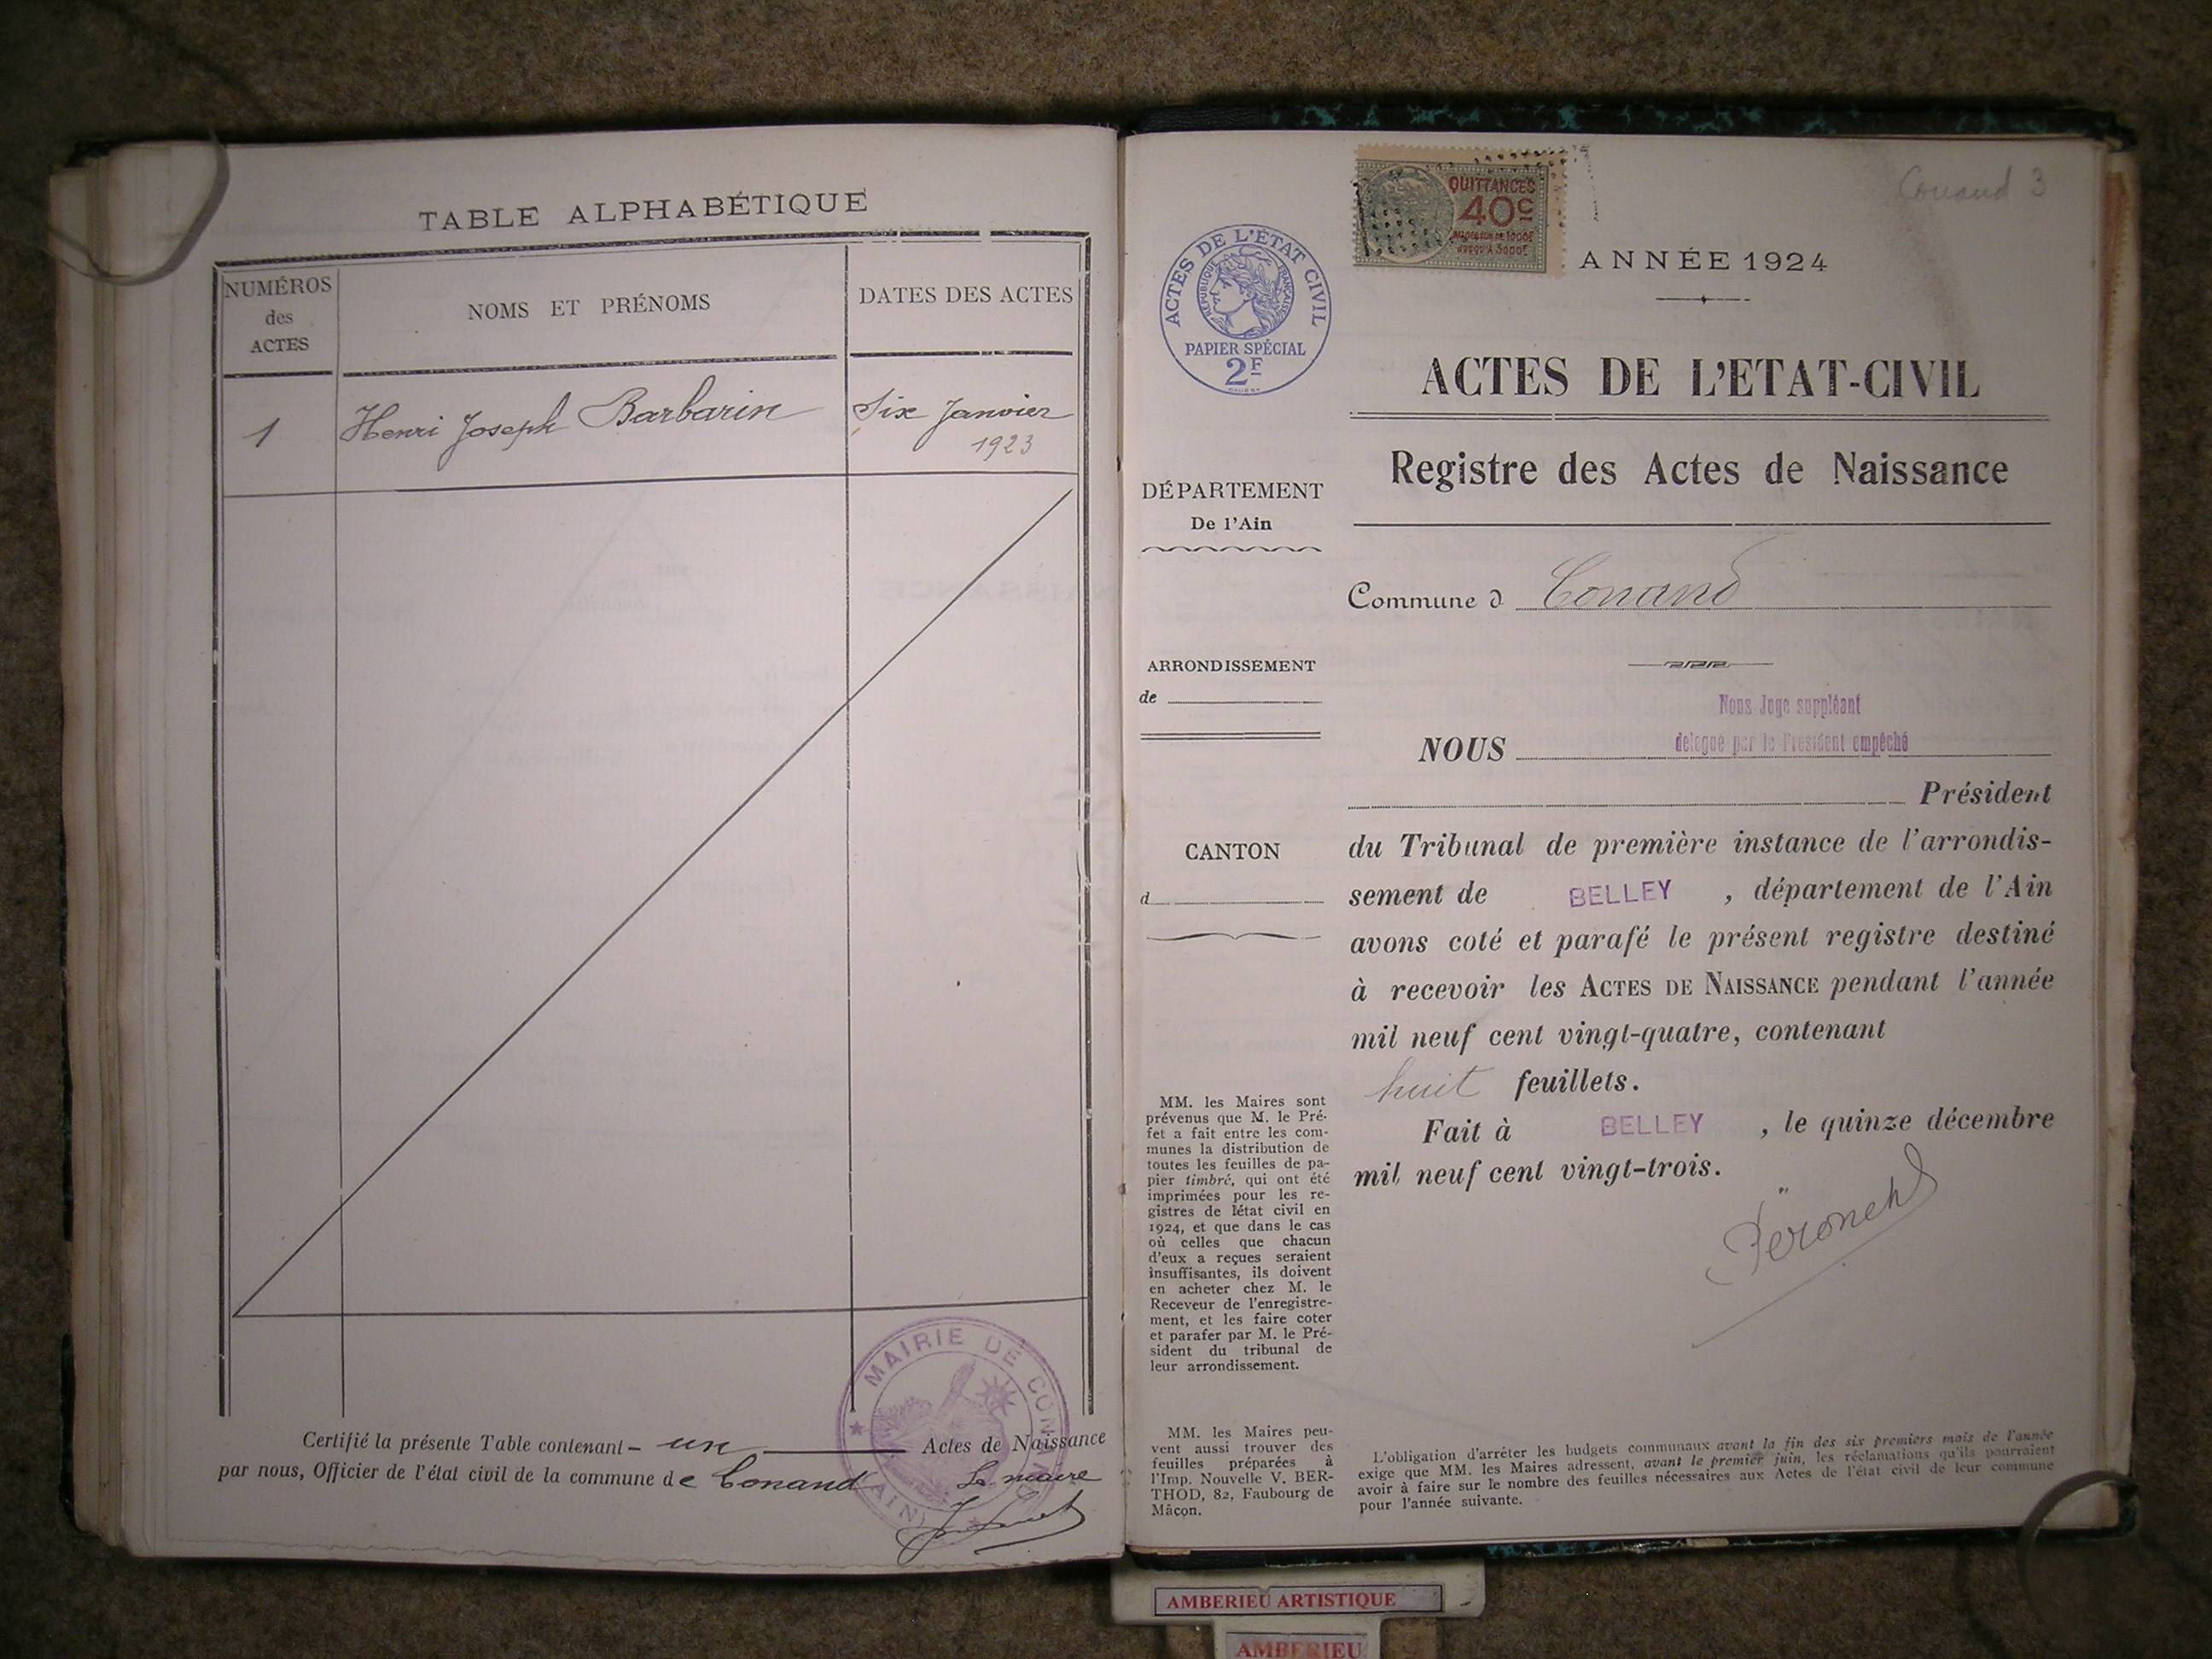 TABLE ALPHABÉTIQUE
NUMÉROS
des
ACTES
NOMS ET PRÉNOMS
DATES DES ACTES
1
Henri Joseph Barbarin
Six Janvier
1923
MAIRIE DE CONAND
(AIN)
Certifié la présente Table contenant un Actes de Naissance
par nous, Officier de l'état civil de la commune de Conand
Le maire
Conand 3
QUITTANCES
40c
ACTES DE L'ÉTAT CIVIL
RÉPUBLIQUE FRANÇAISE
PAPIER SPÉCIAL
2F
ANNÉE 1924
ACTES DE L'ETAT-CIVIL
Registre des Actes de Naissance
DÉPARTEMENT
De l'Ain
Commune d Conand
ARRONDISSEMENT
de
Nous Juge suppléant
NOUS délégué par le Président empêché
Président
CANTON
d
du Tribunal de première instance de l'arrondis-
sement de BELLEY, département de l'Ain
avons coté et parafé le présent registre destiné
à recevoir les ACTES DE NAISSANCE pendant l'année
mil neuf cent vingt-quatre, contenant
huit feuillets.
Fait à BELLEY, le quinze décembre
mil neuf cent vingt-trois.
MM. les Maires sont
prévenus que M. le Pré-
fet a fait entre les com-
munes la distribution de
toutes les feuilles de pa-
pier timbré, qui ont été
imprimées pour les re-
gistres de l'état civil en
1924, et que dans le cas
où celles que chacun
d'eux a reçues seraient
insuffisantes, ils doivent
en acheter chez M. le
Receveur de l'enregistre-
ment, et les faire coter
et parafer par M. le Pré-
sident du tribunal de
leur arrondissement.
MM. les Maires peu-
vent aussi trouver des
feuilles préparées à
l'Imp. Nouvelle V. BER-
THOD, 82, Faubourg de
Mâcon.
L'obligation d'arrêter les budgets communaux avant la fin des six premiers mois de l'année
exige que MM. les Maires adressent, avant le premier juin, les réclamations qu'ils pourraient
avoir à faire sur le nombre des feuilles nécessaires aux Actes de l'état civil de leur commune
pour l'année suivante.
AMBERIEU ARTISTIQUE
AMBERIEU